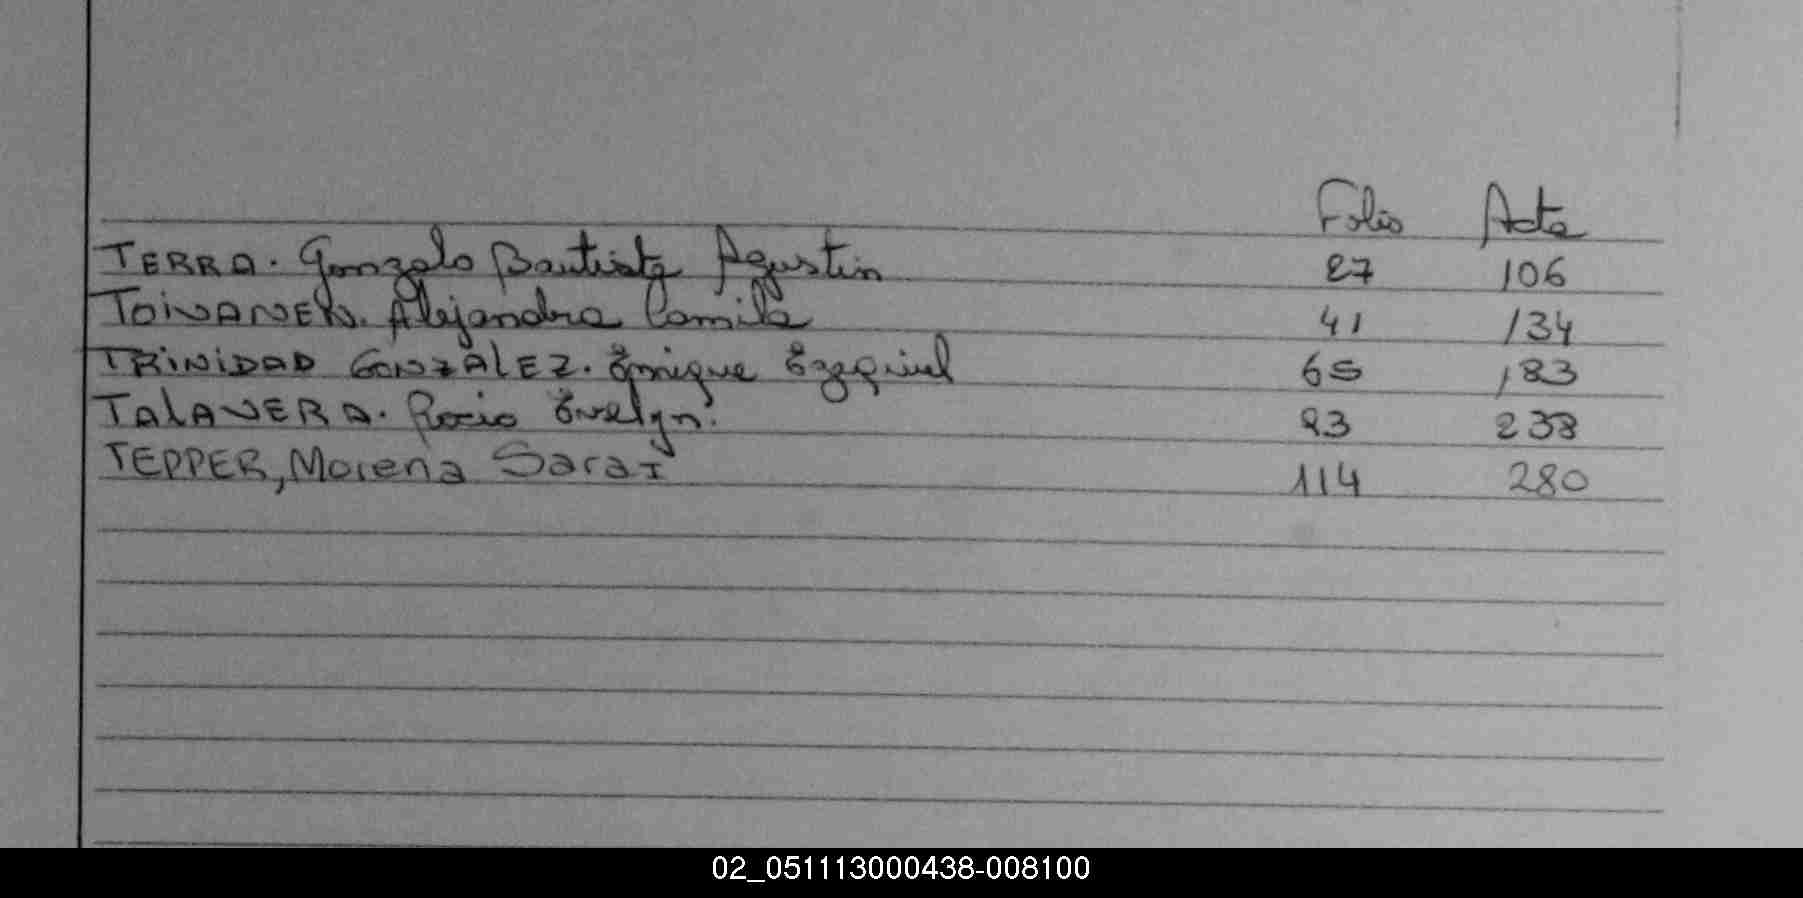 Folio Acta
TERRA. Gonzalo Bautista Agustin 27 106
TOiVANEN. Alejandra Camila 41 134
TRiNiDAD GONZALEZ. Enrique Ezequiel 65 183
TALAVERA. Rocio Evelyn. 93 238
TEPPER, Morena Sarai 114 280
02_051113000438-008100